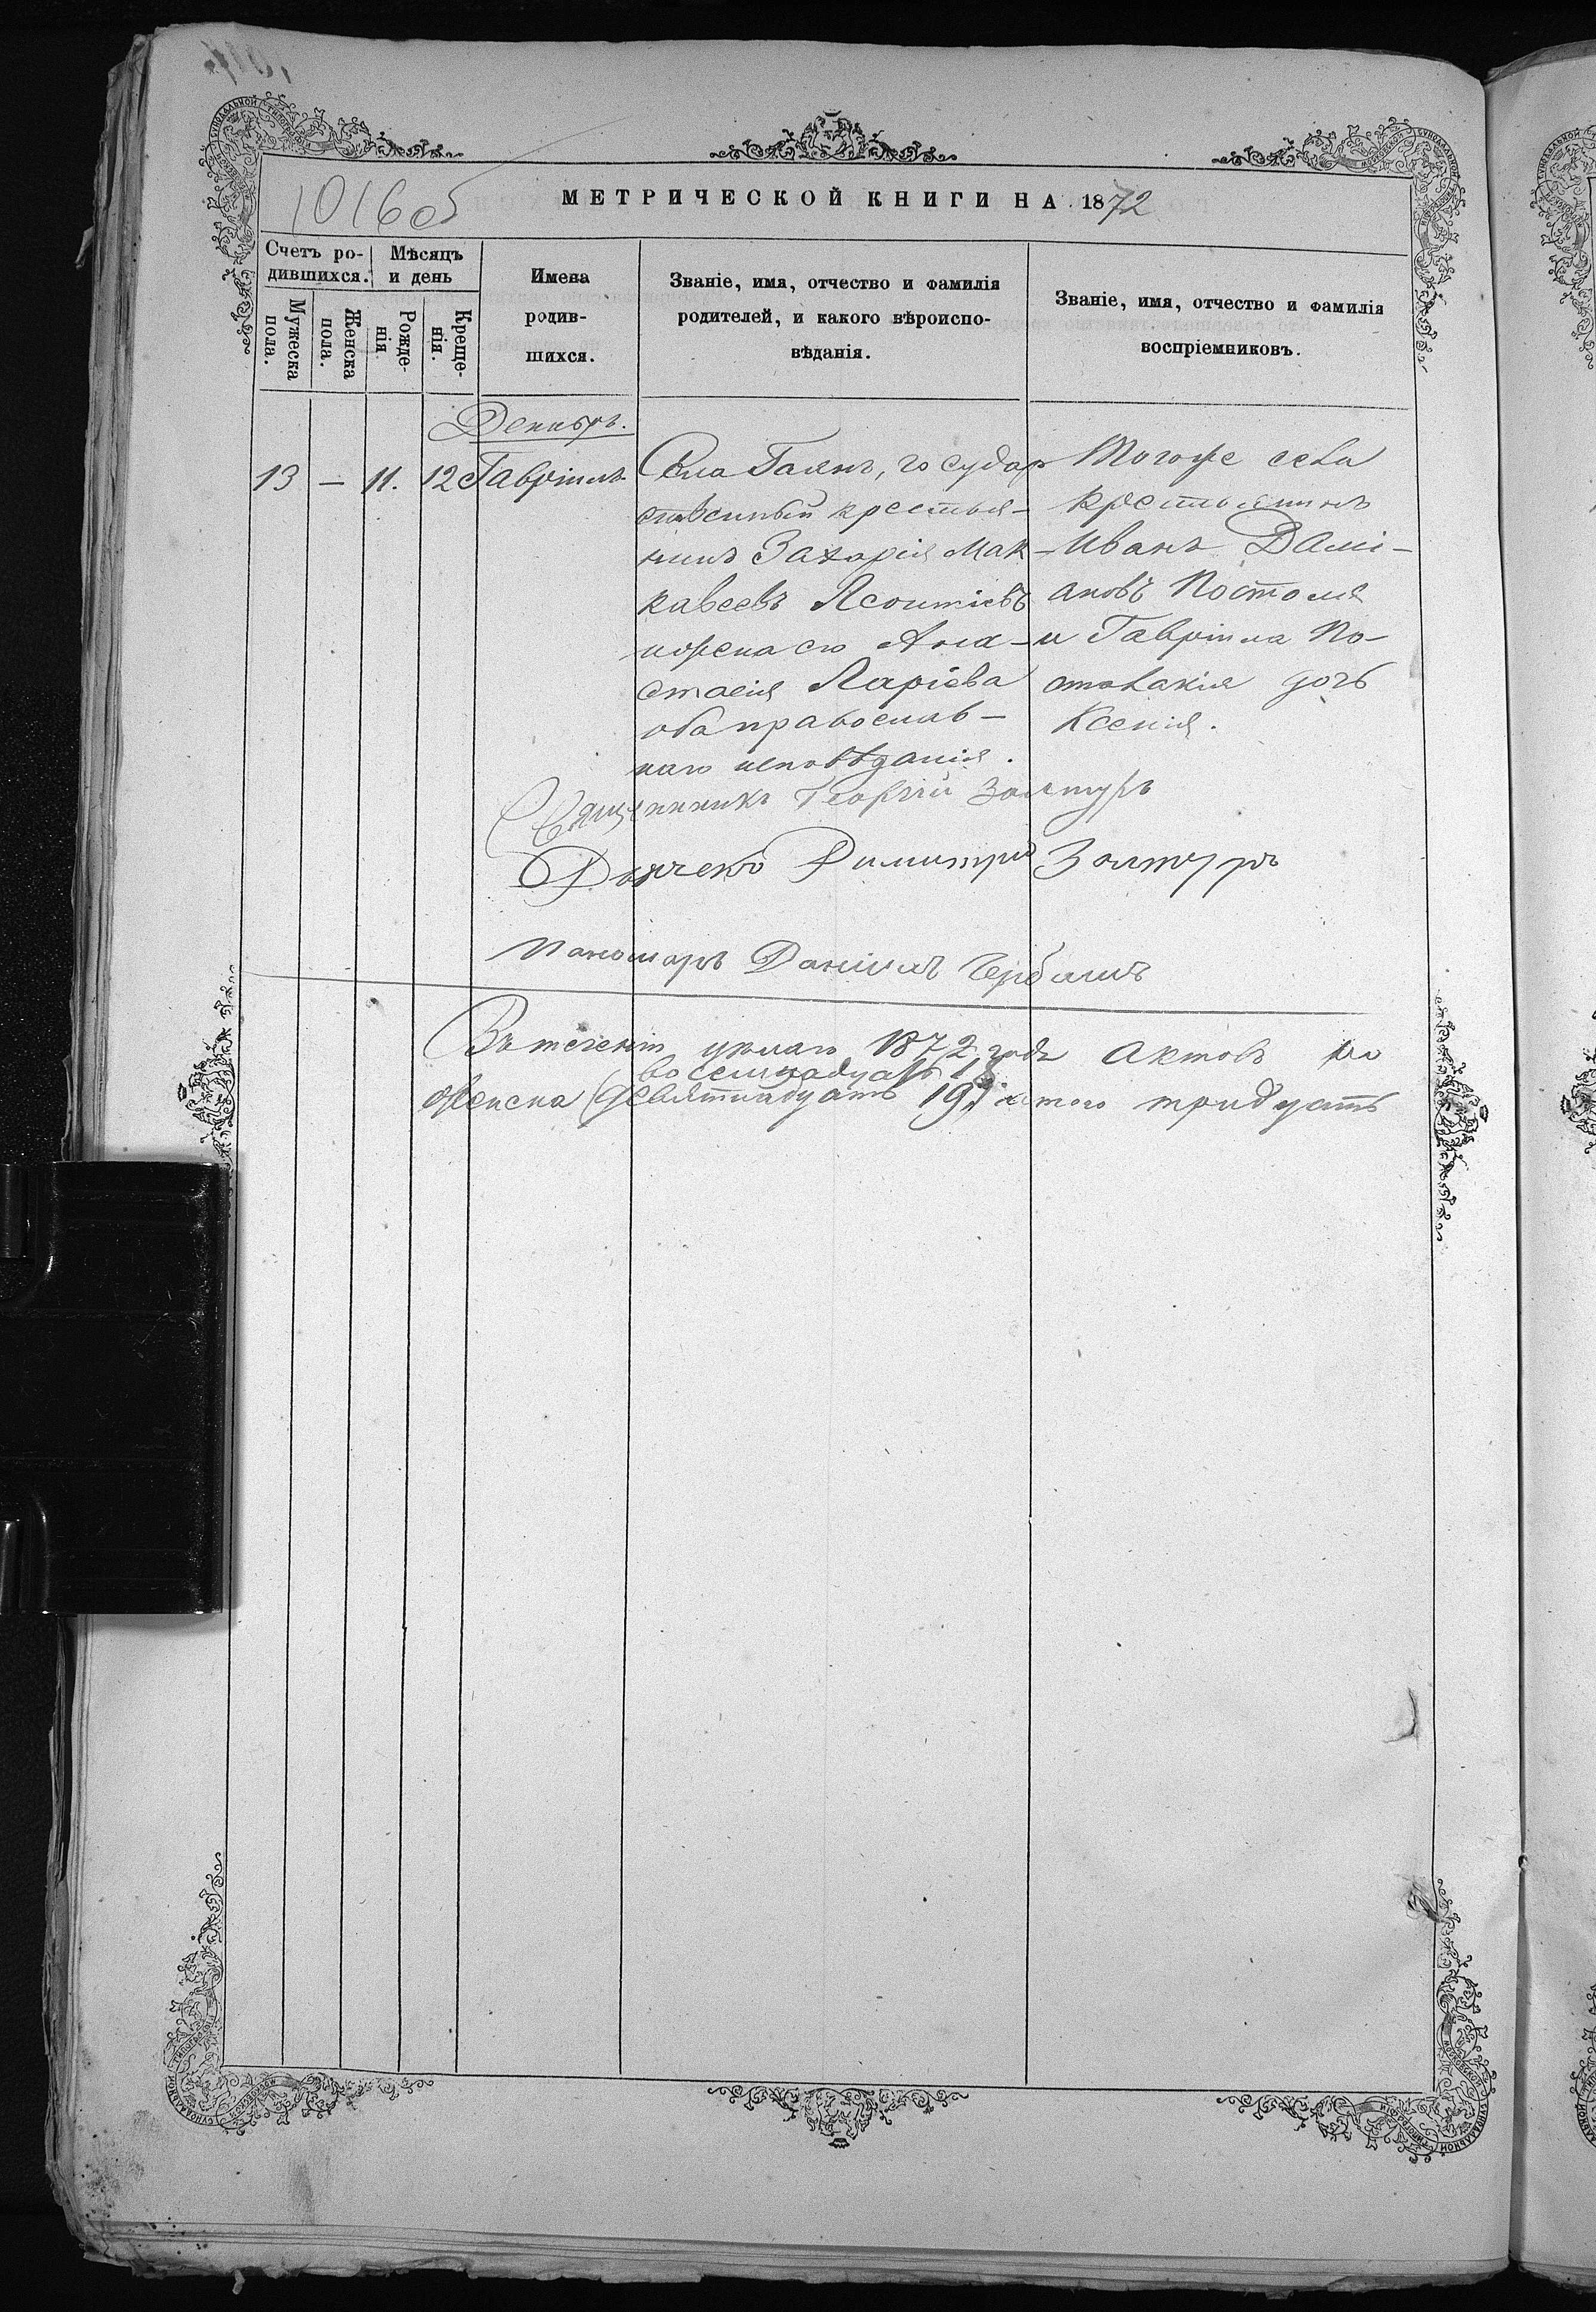 1016об
МЕТРИЧЕСКОЙ КНИГИ НА 1872
Счетъ ро-
дившихся.
Мѣсяцъ
и день
Мужеска
пола.
Женска
пола.
Рожде-
нія.
Креще-
нія.
Имена
родив-
шихся.
Званіе, имя, отчество и фамилія
родителей, и какого вѣроиспо-
вѣданія.
Званіе, имя, отчество и фамилія
воспріемниковъ.
13 — 11. 12 Гавріилъ
Села Гаянъ, государ
ственный крестья-
нинъ Захарія Мак-
кавеевъ Леонтіевъ
ижена его Ана-
стасія Ларіева
оба православ-
наго исповѣданія.
Тогоже села
крестьянинъ
Иванъ Дамі-
ановъ Постолия
и Гавріила По-
столакія дочь
Ксенія.
Священникъ Георгій Золтуръ
Дьячекъ Димитрій Золтуръ
Паномарь Даніилъ
Въ теченіи цѣлаго 1872 года актовъ
восемнадцать 18
женска девятнадцать 19, итого тридцать